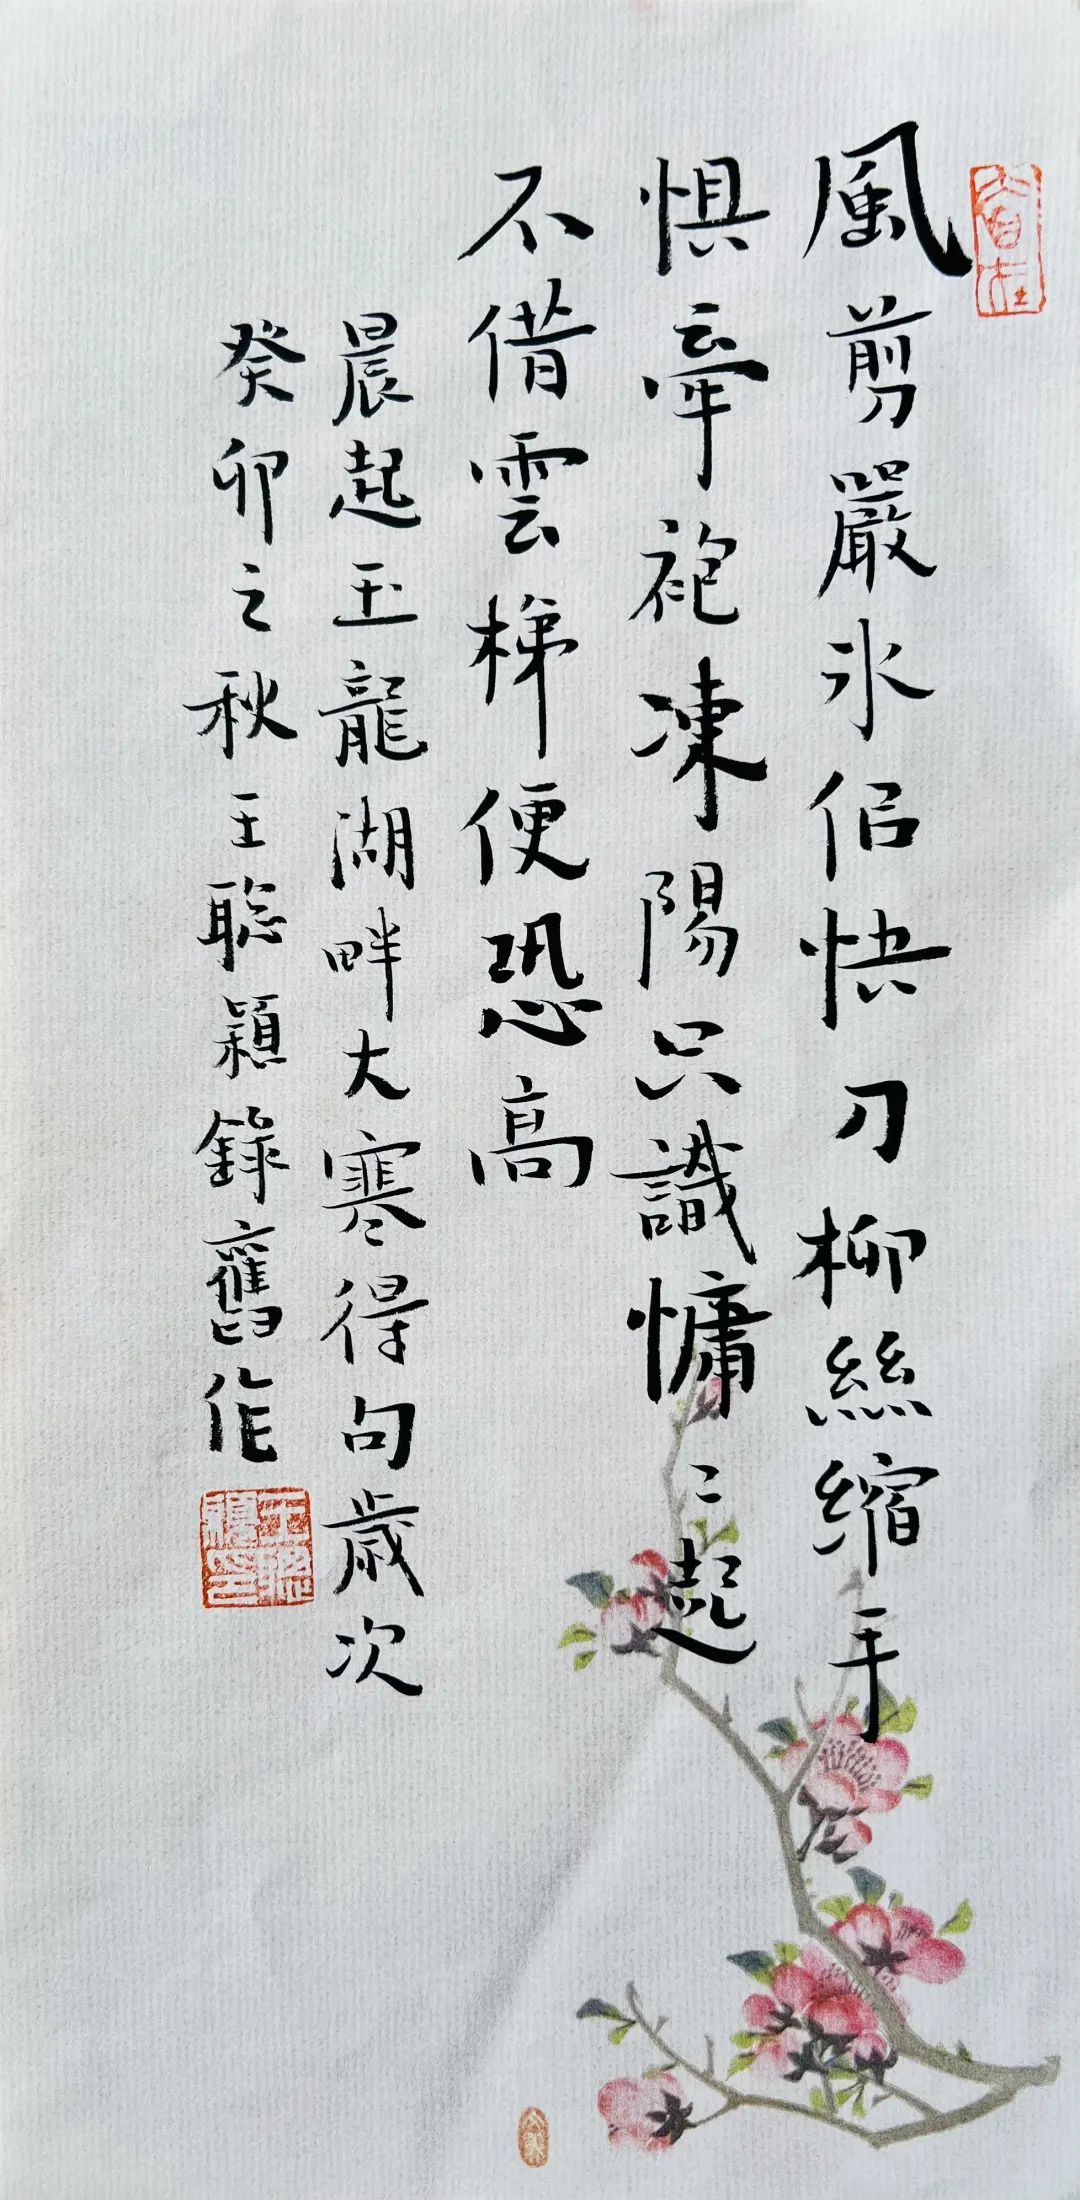 風剪嚴冰侣快刀柳絲縮手
懼牽袍凍陽只識慵〻起
不借雲梯便恐高
晨起玉龍湖畔大寒得句歲次
癸卯之秋王聰穎錄舊作